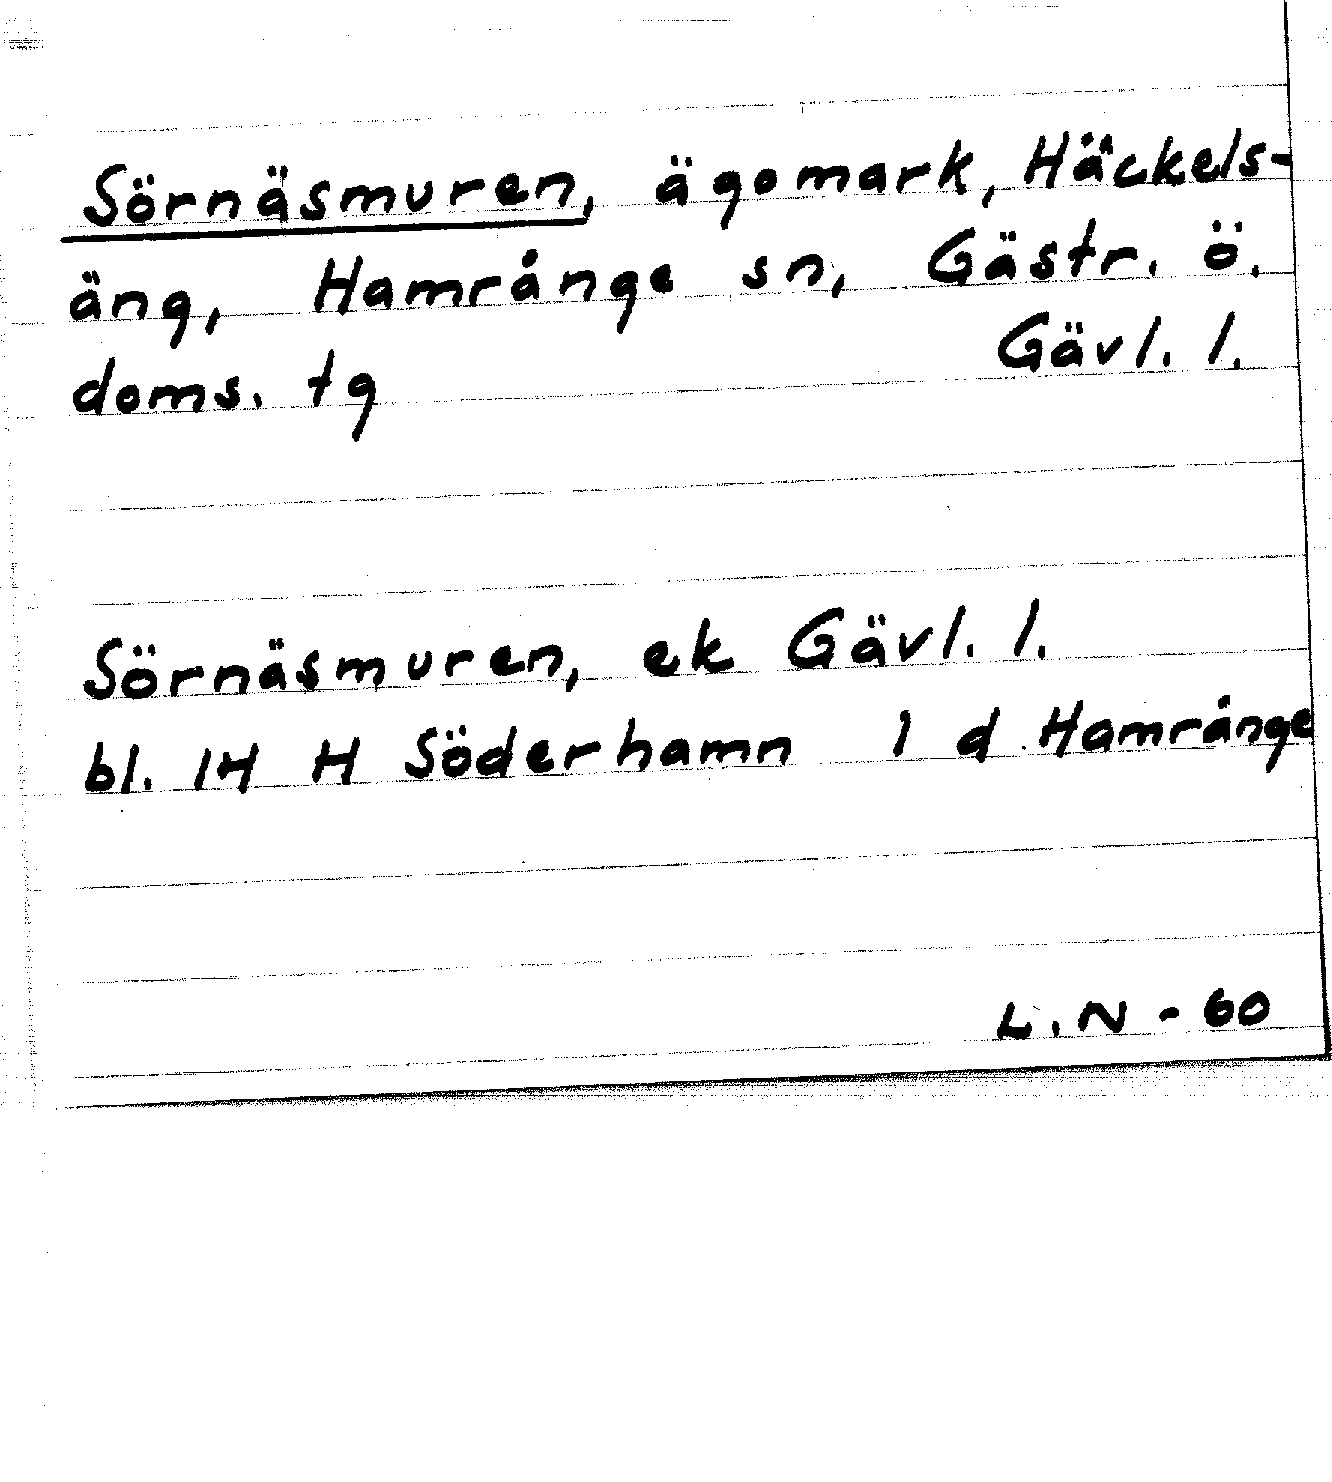 Sörnäsmuren, ägomark, Häckels-
äng, Hamrånge sn, Gästr. ö.
doms. tg Gävl. l.
Sörnäsmuren, ek Gävl. l.
bl. 14 H Söderhamn 1 d Hamrånge
L.N - 60